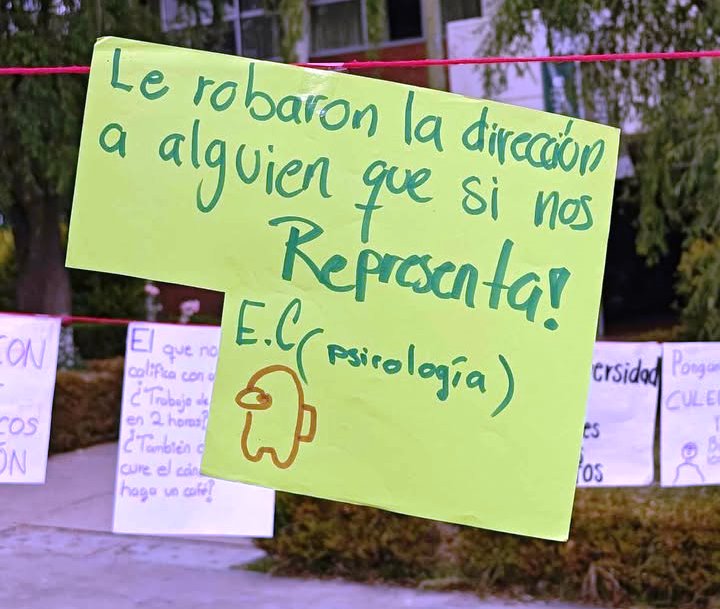 Le robaron la dirección
a alguien que si nos
Representa!
E.C (psicología)
ON
COS
ÓN
El que no
califica con
¿Trabajo de
en 2 horas?
¿También
cure el
haga un café?
ersidad
es
os
Pongan
CULE